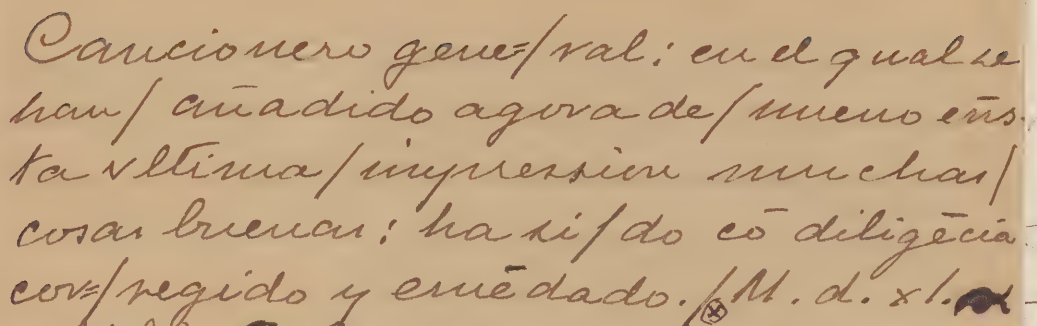 Cancionero gene=/ral: en el qual se
han/ añadido agora de/ nueuo eñs-
ta vltima/ impression muchas/
cosas buenas: ha si/do cō diligēcia
cor=/regido y emēdado./ M. d. xl.